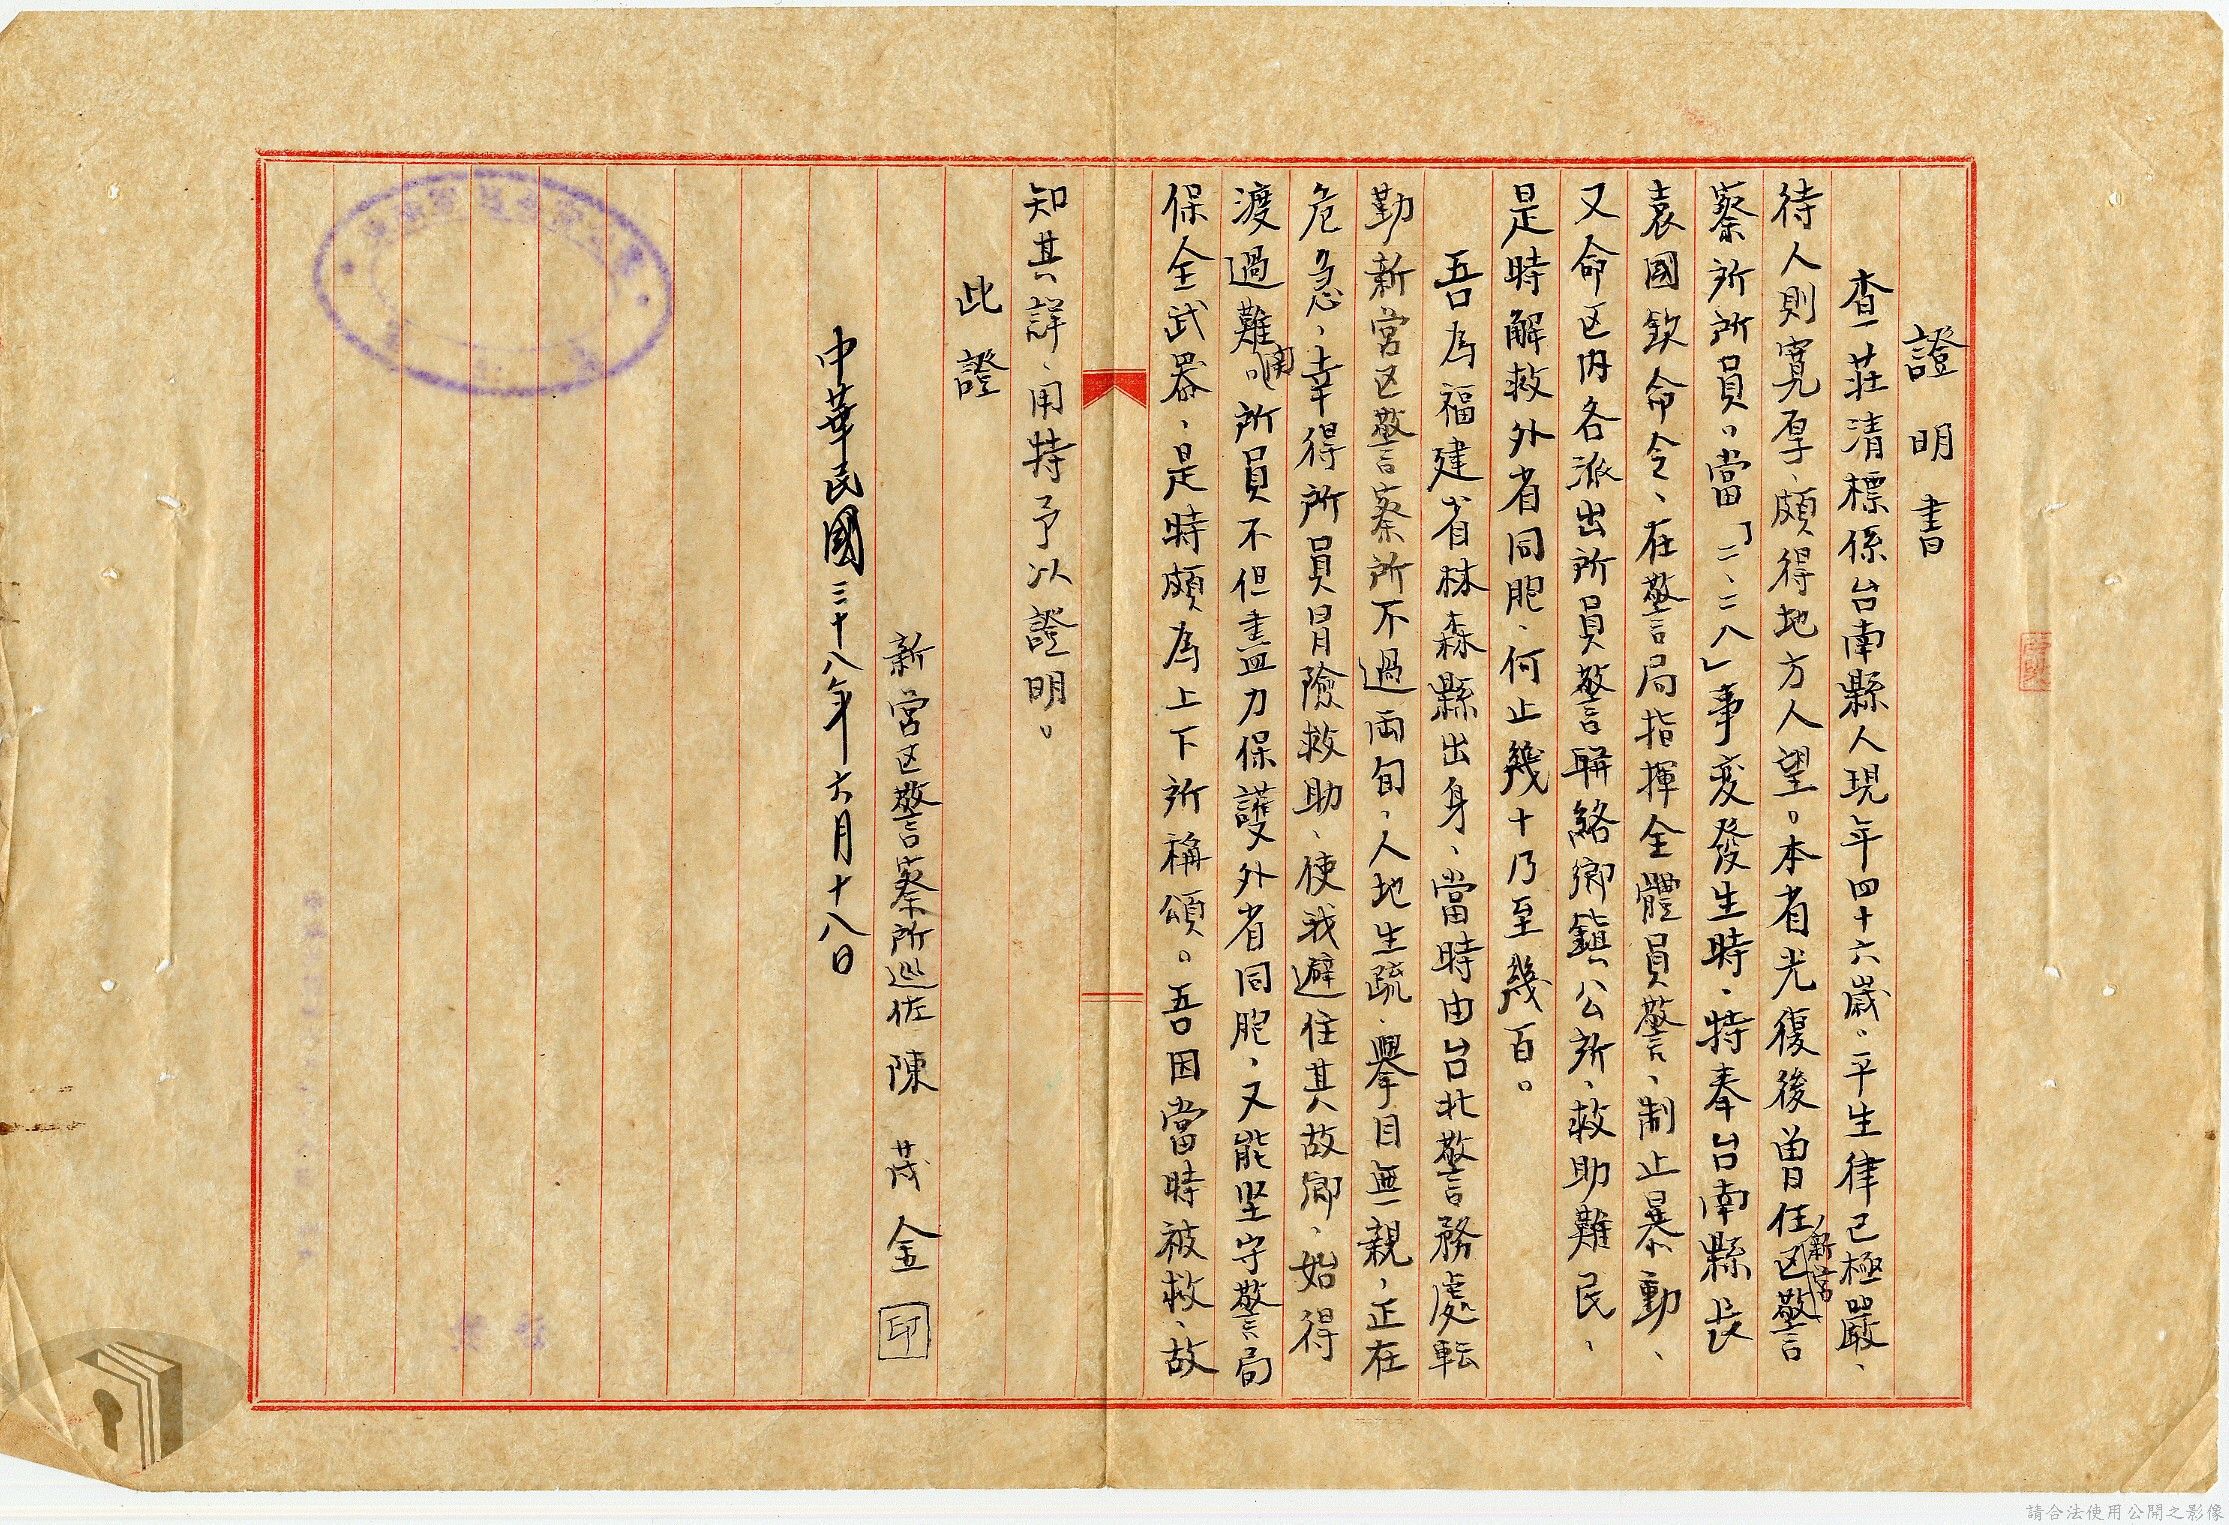 證明書
查莊清標係台南縣人現年四十六歲、平生律己極嚴、
待人則寬厚、頗得地方人望。本省光復後曾任新营区警
察所所員。當「二、二八」事変發生時、特奉台南縣長
袁國欽命令、在警局指揮全體員警、制止暴動、
又命区內各派出所員警聯絡鄉鎮公所、救助難民、
是時解救外省同胞、何止幾十乃至幾百。
吾為福建省林森縣出身、當時由台北警務處転
勤新营区警察所不過両旬、人地生疏、舉目無親、正在
危急、幸得所員冒險救助、使我避住其故鄉、始得
渡過難關。所員不但盡力保護外省同胞、又能坚守警局
保全武器、是時頗為上下所稱頌。吾因當時被救、故
知其詳、用特予以證明。
此證
新营区警察所巡佐 陳茂金 印
中華民國三十八年六月十八日
請合法使用公開之影像